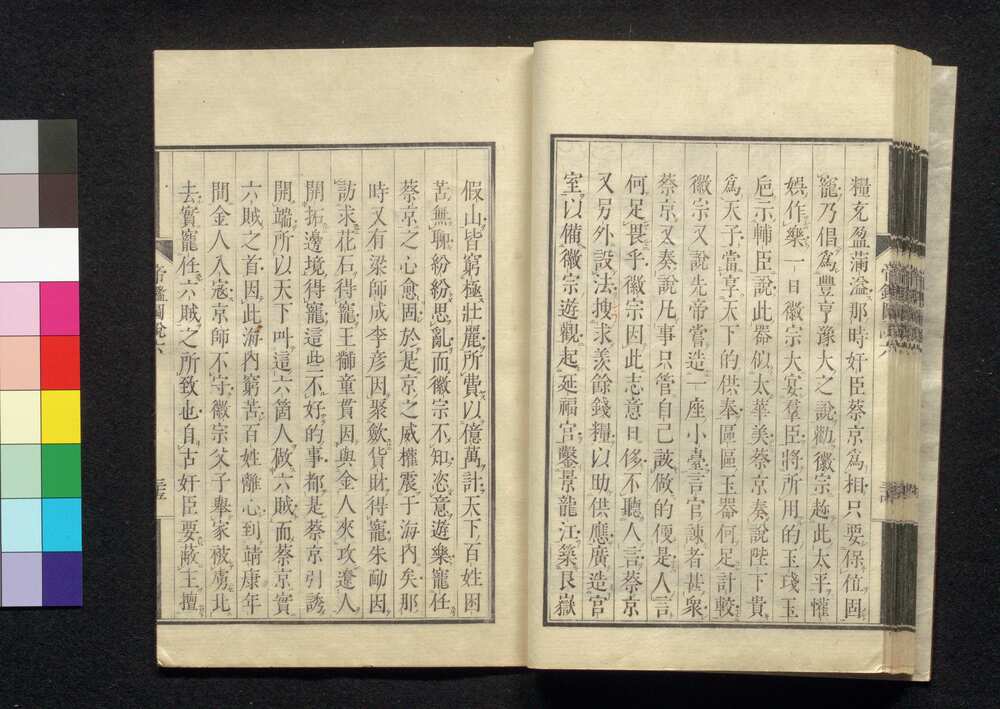 糧充盈滿溢那時奸臣蔡京爲相只要保位固
寵乃倡爲豐亨豫大之說勸徽宗趁此太平懽
娛作樂一日徽宗大宴羣臣將所用的玉琖玉
巵示輔臣說此器似太華美蔡京奏說陛下貴
爲天子當享天下的供奉區區玉器何足計較
徽宗又說先帝嘗造一座小臺言官諫者甚衆
蔡京又奏說凡事只管自己該做的便是人言
何足畏乎徽宗因此志意日侈不聽人言蔡京
又另外設法搜求羨餘錢糧以助供應廣造宮
室以備徽宗遊觀起延福宮鑿景龍江築艮嶽
假山皆窮極壯麗所費以億萬計天下百姓困
苦無聊紛紛思亂而徽宗不知恣意遊樂寵任
蔡京之心愈固於是京之威權震于海內矣那
時又有梁師成李彦因聚歛貨財得寵朱勔因
訪求花石得寵王黼童貫因與金人夾攻遼人
開拓邊境得寵這些不好的事都是蔡京引誘
開端所以天下叫這六箇人做六賊而蔡京實
六賊之首因此海內窮苦百姓離心到靖康年
間金人入寇京師不守徽宗父子舉家被虜北
去實寵任六賊之所致也自古奸臣要蔽主擅
帝鑑圖說六